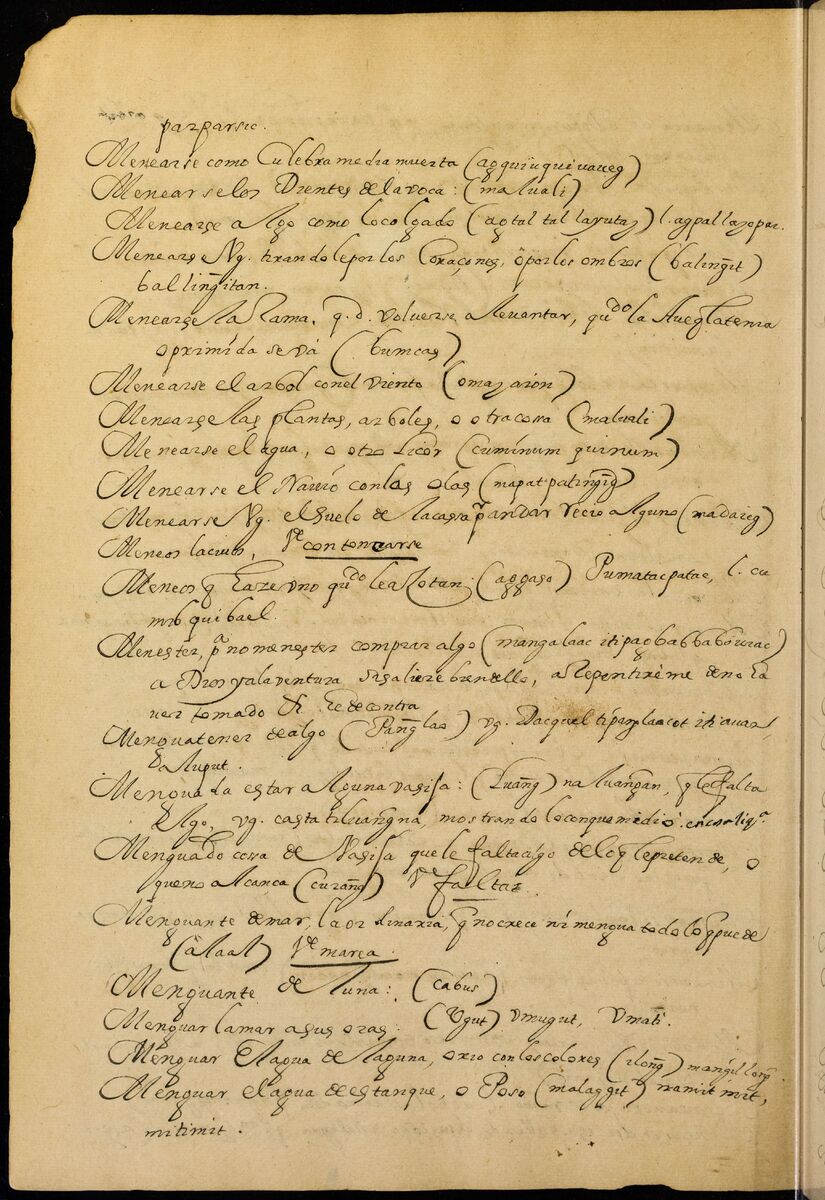 parparsic.
Menearse como Culebra media muerta (agquiuquivaveg)
Menearse los Dientes de la voca: (maluali)
Menearse algo como lo colgado (agtal tal layutay) l. agpallayopay.
Menearse Vg. tirandole por los Coraçones, o por los ombros (balingit)
ballingitan.
Menearse la Rama, q. d. volverse a levantar, qudo la Ave q la tenia
oprimida se vá (bumcas)
Menearse el arbol con el viento (omayaion)
Menearse las plantas, arboles, o otra cosa (maluali)
Menearse el agua, o otro licor (cuminum quinum)
Menearse el Navio con las olas (mapatpalingig)
Menearse Vg. el suelo de la cassa pr andar recio alguno (madayeg)
Meneos lacivos, Ve contonearse
Meneos q haze uno qudo le azotan: (aggaso) Pumatacpatac, l. cu
mib quibael.
Menester, pa no menester comprar algo (mangalaac iti pagbabbabouiac)
a Dios y a la ventura si saliere bien dello, a Repentireme de no ha
ver tomado
Mengua tener de algo (PangLao) vg. Dacquel ti panglaocot iti auan,
da luput.
Menguada estar alguna vasija: (Luang) naluangan, q le falta
algo, vg. casta ti luangna, mostrando lo con que midió. en cosa liqa.
Menguado cosa de Vasija que le falta algo de lo q le pretende, o
que no alcança (curang) Ve faltar.
Menguante de mar, la ordinaria, q no crece ni mengua todo lo q puede
(alaal) Ve marea.
Menguante de luna: (cabus)
Menguar la mar a sus oras. (Vgut) vmugut, vmati.
Menguar El agua de laguna, o rio con los colores (ilong) mangillong.
Menguar el agua de estanque, o Poso (malaggit) namitmit,
mitimit.